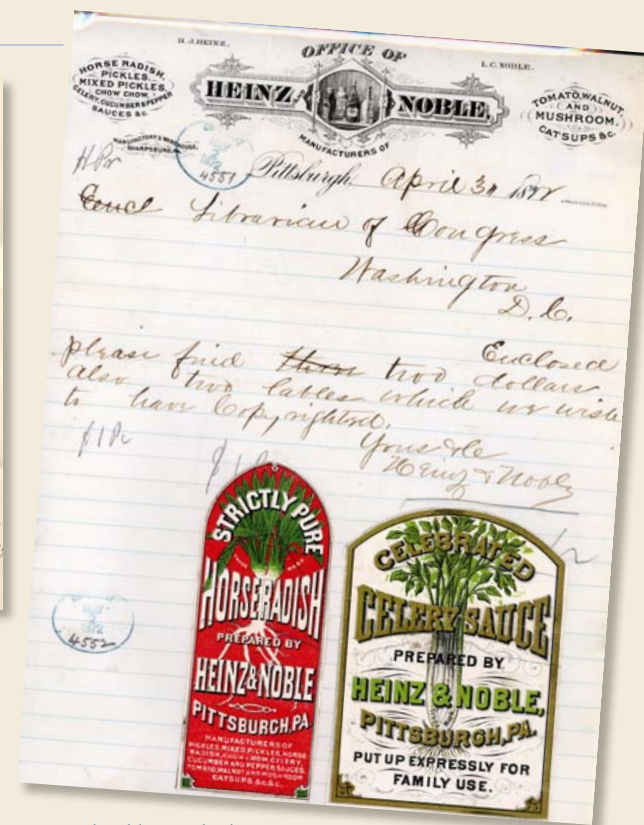 H. J. HEINZ.
OFFICE OF
L. C. NOBLE.
HORSE RADISH,
PICKLES,
MIXED PICKLES,
CHOW CHOW,
CELERY, CUCUMBER & PEPPER
SAUCES &C.
HEINZ, NOBLE,
TOMATO, WALNUT,
AND
MUSHROOM,
CATSUPS &C.
MANUFACTORY & WAREHOUSE,
SHARPSBURG.
MANUFACTURERS OF
4551
Pittsburgh, April 3 1872
Librarian of Congress
Washington
D. C.
Enclosed
please find two dollars
also two lables which we wish
to have Copyrighted.
Yours &c
Heinz & Noble
1872
4552
STRICTLY PURE
TRADE MARK
HORSERADISH
PREPARED BY
HEINZ & NOBLE
PITTSBURGH, PA.
MANUFACTURERS OF
PICKLES, MIXED PICKLES, HORSE-
RADISH, CHOW CHOW, CELERY,
CUCUMBER AND PEPPER SAUCES,
TOMATO, WALNUT AND MUSHROOM
CATSUPS &c. &c.
CELEBRATED
CELERY SAUCE
PREPARED BY
HEINZ & NOBLE,
PITTSBURGH, PA.
PUT UP EXPRESSLY FOR
FAMILY USE.